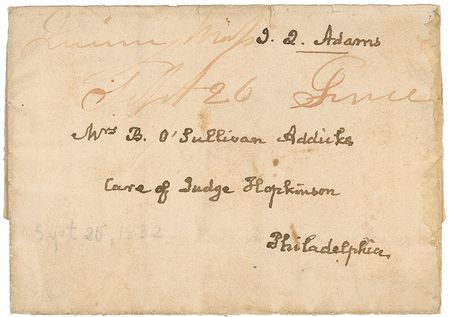 Quincy Mass J. Q. Adams
Sept 26 Free
Mrs B. O'Sullivan Addicks
Care of Judge Hopkinson
Sept 25, 1832
Philadelphia.